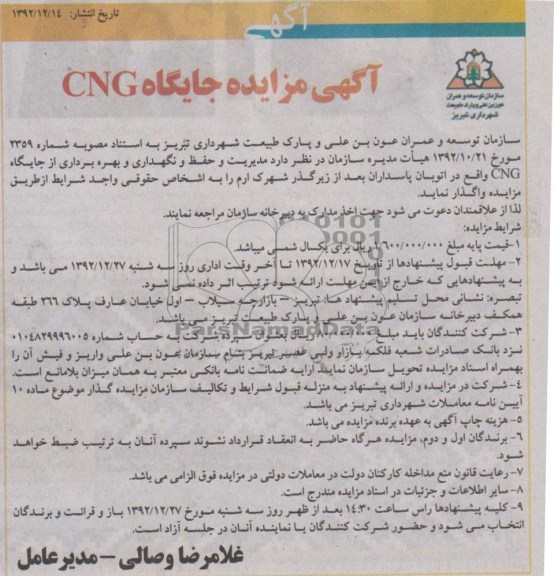 تاریخ انتشار: ۱۳۹۲/۱۲/۱۴
آگهی
آگهی مزایده جایگاه CNG
سازمان توسعه و عمران
عون بن علی و پارک طبیعت
شهرداری تبریز
سازمان توسعه و عمران عون بن علی و پارک طبیعت شهرداری تبریز به استناد مصوبه شماره ۲۳۵۹
مورخ ۱۳۹۲/۱۰/۲۱ هیأت مدیره سازمان در نظر دارد مدیریت و حفظ و نگهداری و بهره برداری از جایگاه
CNG واقع در اتوبان پاسداران بعد از زیرگذر شهرک ارم را به اشخاص حقوقی واجد شرایط ازطریق
مزایده واگذار نماید.
لذا از علاقمندان دعوت می شود جهت اخذ مدارک به دبیرخانه سازمان مراجعه نمایند.
شرایط مزایده:
۱-قیمت پایه مبلغ ۱/۶۰۰/۰۰۰/۰۰۰ ریال برای یکسال شمسی میباشد.
۲- مهلت قبول پیشنهادها از تاریخ ۱۳۹۲/۱۲/۱۷ تا آخر وقت اداری روز سه شنبه ۱۳۹۲/۱۲/۲۷ می باشد و
به پیشنهادهایی که خارج از این مهلت ارائه شود ترتیب اثر داده نمی شود.
تبصره: نشانی محل تسلیم پیشنهاد ها: تبریز – بازارچه سیلاب – اول خیابان عارف پلاک ۲۶۶ طبقه
همکف دبیرخانه سازمان عون بن علی و پارک طبیعت تبریز می باشد.
۳- شرکت کنندگان باید مبلغ ریال بعنوان سپرده شرکت به حساب شماره ۰۱۰۴۸۲۹۹۹۶۰۰۵
نزد بانک صادرات شعبه فلکه بازار ولی عصر تبریز بنام سازمان عون بن علی واریز و فیش آن را
بهمراه اسناد مزایده تحویل سازمان نمایند ارایه ضمانت نامه بانکی معتبر به همان میزان بلامانع است.
۴- شرکت در مزایده و ارائه پیشنهاد به منزله قبول شرایط و تکالیف سازمان مزایده گذار موضوع ماده ۱۰
آیین نامه معاملات شهرداری تبریز می باشد.
۵- هزینه چاپ آگهی به عهده برنده مزایده می باشد.
۶- برندگان اول و دوم، مزایده هرگاه حاضر به انعقاد قرارداد نشوند سپرده آنان به ترتیب ضبط خواهد
شود.
۷- رعایت قانون منع مداخله کارکنان دولت در معاملات دولتی در مزایده فوق الزامی می باشد.
۸- سایر اطلاعات و جزئیات در اسناد مزایده مندرج است.
۹- کلیه پیشنهادها راس ساعت ۱۴:۳۰ بعد از ظهر روز سه شنبه مورخ ۱۳۹۲/۱۲/۲۷ باز و قرائت و برندگان
انتخاب می شود و حضور شرکت کنندگان یا نماینده آنان در جلسه آزاد است.
غلامرضا وصالی – مدیرعامل
ParsNamadData